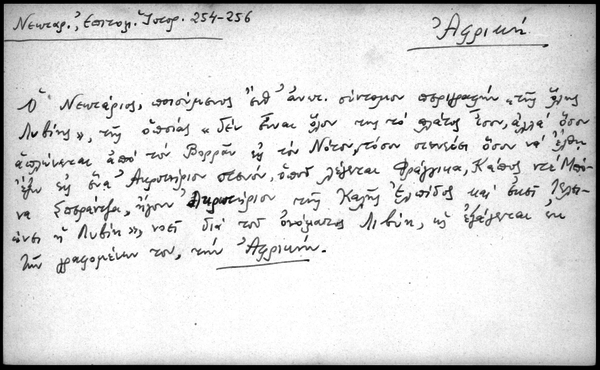 Νεκταρ., Ἐπιτομ. Ἱστορ. 254-256
Ἀφρική
Ὁ Νεκτάριος, ποιούμενος ἐνθ' ἀνωτ. σύντομον περιγραφήν «τῆς ὅλης
Λιβύης», τῆς ὁποίας «δέν εἶναι ὅλον της τό πλάτος ἴσον, ἀλλά ὅσον
ἁπλώνεται ἀπό τόν Βορρᾶν εἰς τόν Νότον, τόσον στενεύει ὅσον νά ἔλθῃ
ἔξω εἰς ἕνα Ἀκρωτήριον στενόν, ὁποῦ λέγεται Φράγκικα, Κάπος ντέ Μπό-
να Σπεράντζα, ἤγουν Ἀκρωτήριον τῆς Καλῆς Ἐλπίδος καί ἐκεῖ τελει-
ώνει ἡ Λιβύη», νοεῖ διά τοῦ ὀνόματος Λιβύη, ὡς ἐξάγεται ἐκ
τῶν γραφομένων του, τήν Ἀφρικήν.